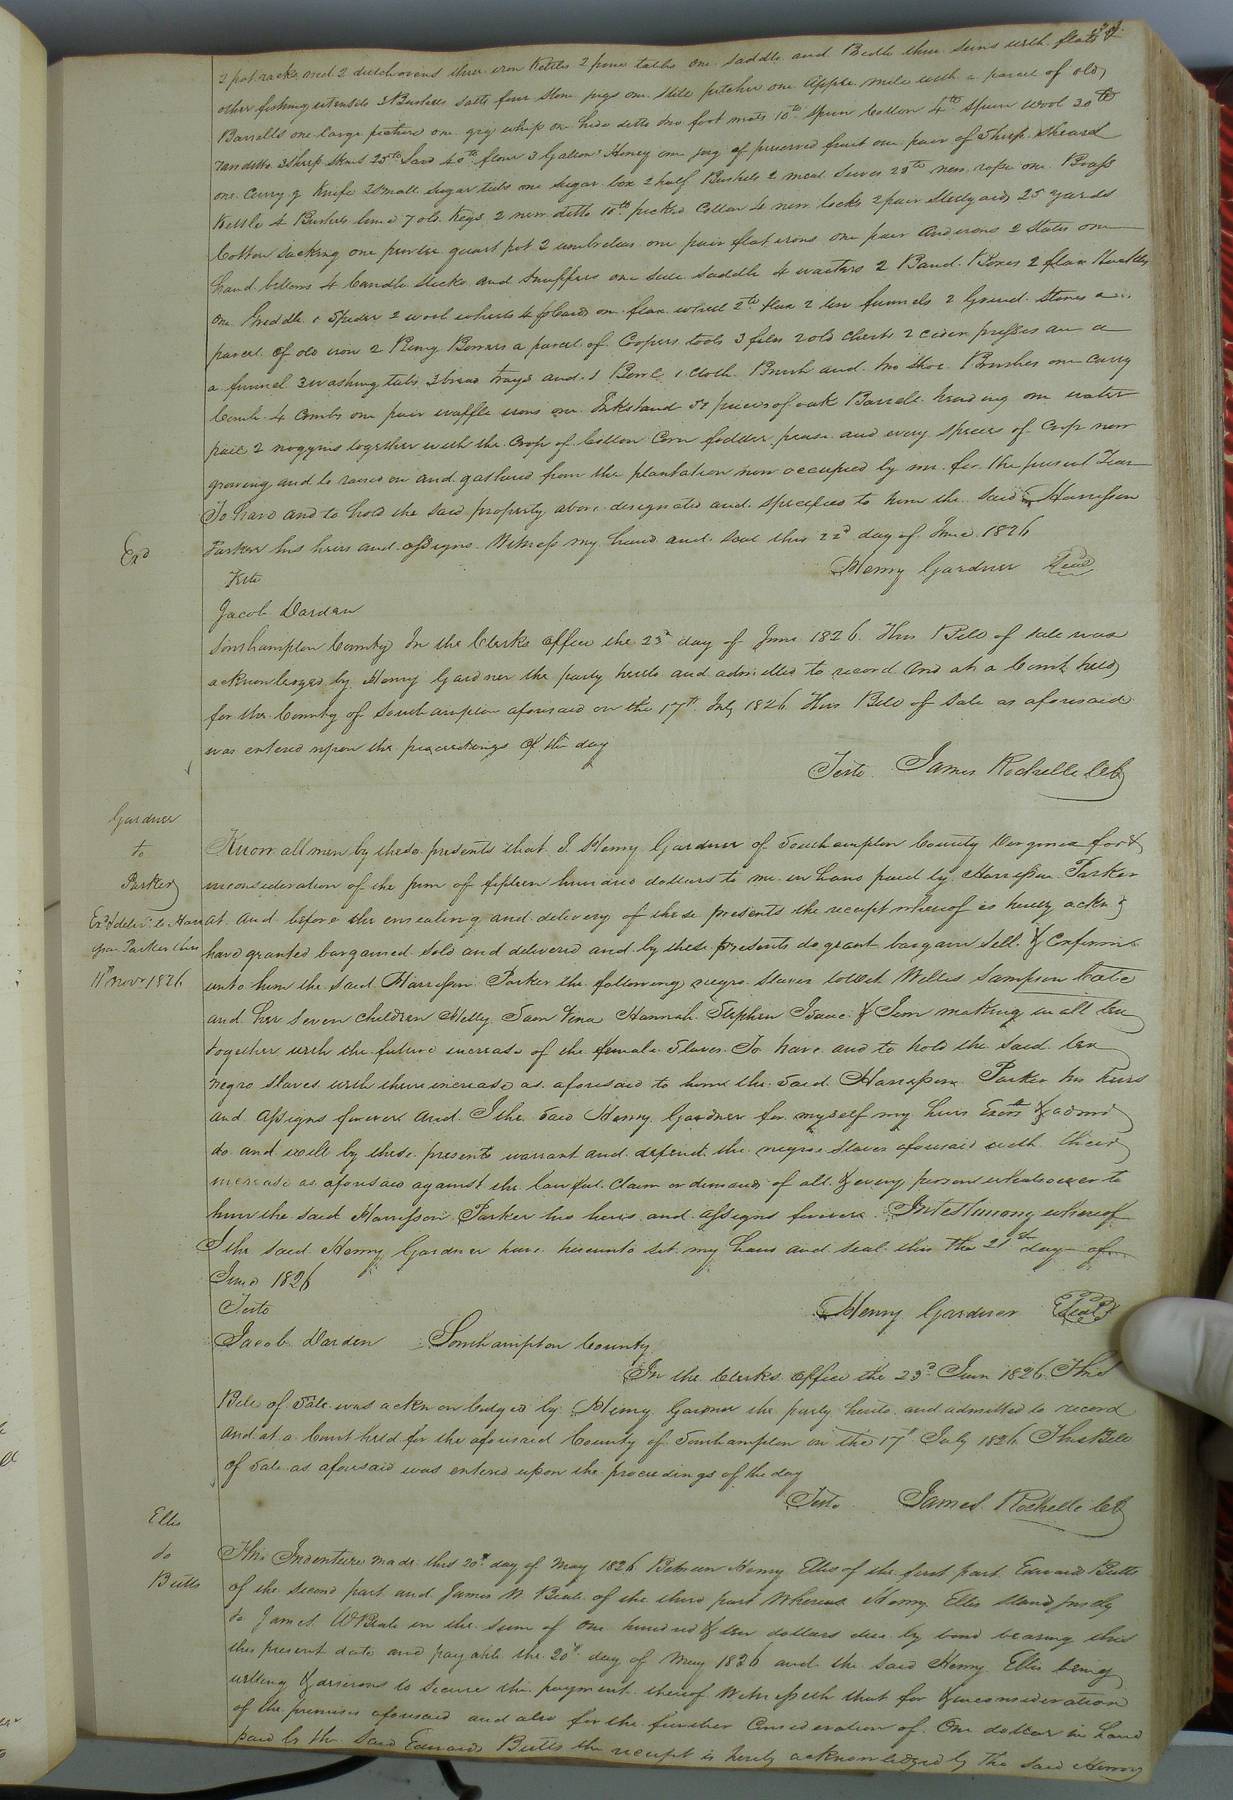 2 pot racks and 2 dutch ovens three iron Kettles 2 pine tables one saddle and Bridle three seins with floats &
other fishing utensils 3 Bushels salts four stone jugs one still pitcher one Apple mill with a parcel of old
Barrells one large picture one gig whip one hide ditto two foot mats 10 lb spun Cotton 4 lb spun Wool 20 lb
ditto 3 sheep skins 25 lb Lard 40 lb flour 3 Gallons Honey one jug of preserved fruit one pair of sheep sheard
one Curry g Knife 2 small sugar tubs one sugar box 2 half Bushels 2 meal seives 28 lb new rope one Brass
Kettle 4 Bushels lime 7 old Kegs 2 new ditto 10 lb picked Cotton 4 new locks 2 pair stillyards 25 yards
Cotton sacking one pewter quart pot 2 umbrellas one pair flat irons one pair Andirons 2 slates one
hand bellows 4 Candle sticks and snuffers one side saddle 4 waiters 2 Band Boxes 2 flax Hackles
one Griddle 1 Spider 2 wool wheels 4 pr Cards one flax wheel 2 lb flax 2 tin funnels 2 Grind stones a
parcel of old iron 2 a parcel of Coopers tools 3 files 2 old chests 2 cider presses and a
a funnel 3 washing tubs 3 bread trays and 1 Bowl 1 Cloth Brush and two shoe Brushes one Curry
Comb 4 Combs one pair waffle irons one Inkstand 50 pieces of oak Barrell heading one water
pail 2 noggins together with the Crop of Cotton Corn fodder pease and every species of Crop now
growing and to raised on and gathered from the plantation now occupied by me for the present Year
To have and to hold the said property above designated and specified to him the said Harrison
Exd
Parker his heirs and assigns Witness my hand and seal this 22d day of June 1826
Henry Gardner Seal
Teste
Jacob Darden
Southampton County In the Clerks Office the 23d day of June 1826. This Bill of sale was
acknowledged by Henry Gardner the party hereto and admitted to record And at a Court held
for the County of Southampton aforesaid on the 17th July 1826 This Bill of Sale as aforesaid
was entered upon the proceedings of the day
Teste James Rochelle ClC
Gardner
to
Parker
Exd & delivd to Harri
son Parker
11th novr 1826
Know all men by these presents that I Henry Gardner of Southampton County Virginia for &
inconsideration of the sum of fifteen hundred dollars to me in hand paid by Harrison Parker
at and before the ensealing and delivery of these presents the receipt whereof is hereby ackn g
have granted bargained sold and delivered and by these presents do grant bargain sell & Confirm
unto him the said Harrison Parker the following negro slaves towit Willis Sampson Cate
and her seven children Milly Sam Vina Hannah Stephen Isaac & Jem making in all ten
together with the future increase of the female Slaves To have and to hold the said ten
negro slaves with there increase as aforesaid to him the said Harrison Parker his heirs
and assigns forever and I the said Henry Gardner for myself my heirs Exors & admrs
do and will by these presents warrant and defend the negroe slaves aforesaid with their
increase as aforesaid against the lawful Claim or demand of all & every person whatsoever to
him the said Harrison Parker his heirs and assigns forever. In testimony whereof
I the said Henry Gardner have hereunto set my hand and seal this the 21st day of
June 1826
Teste
Henry Gardner Seal
Jacob Darden Southampton County
In the Clerks Office the 23d June 1826. This
Bill of Sale was acknowledged by Henry Gardner the party hereto and admitted to record
and at a Court held for the aforesaid County of Southampton on the 17th July 1826 This Bill
of Sale as aforesaid was entered upon the proceedings of the day
Teste James Rochelle ClC
Ellis
to
Butts
This Indenture made this 20th day of May 1826 Between Henry Ellis of the first part Edward Butts
of the second part and James W Beale of the third part Whereas Henry Ellis stand justly
to James W Beale in the sum of one hundred & ten dollars due by bond bearing this
this present date and payable the 20th day of May 1826 and the said Henry Ellis being
willing & desirous to secure the payment thereof Witnesseth that for & inconsideration
of the premises aforesaid and also for the further Consideration of One dollar in hand
paid by the said Edward Butts the receipt is hereby acknowledged by the said Henry